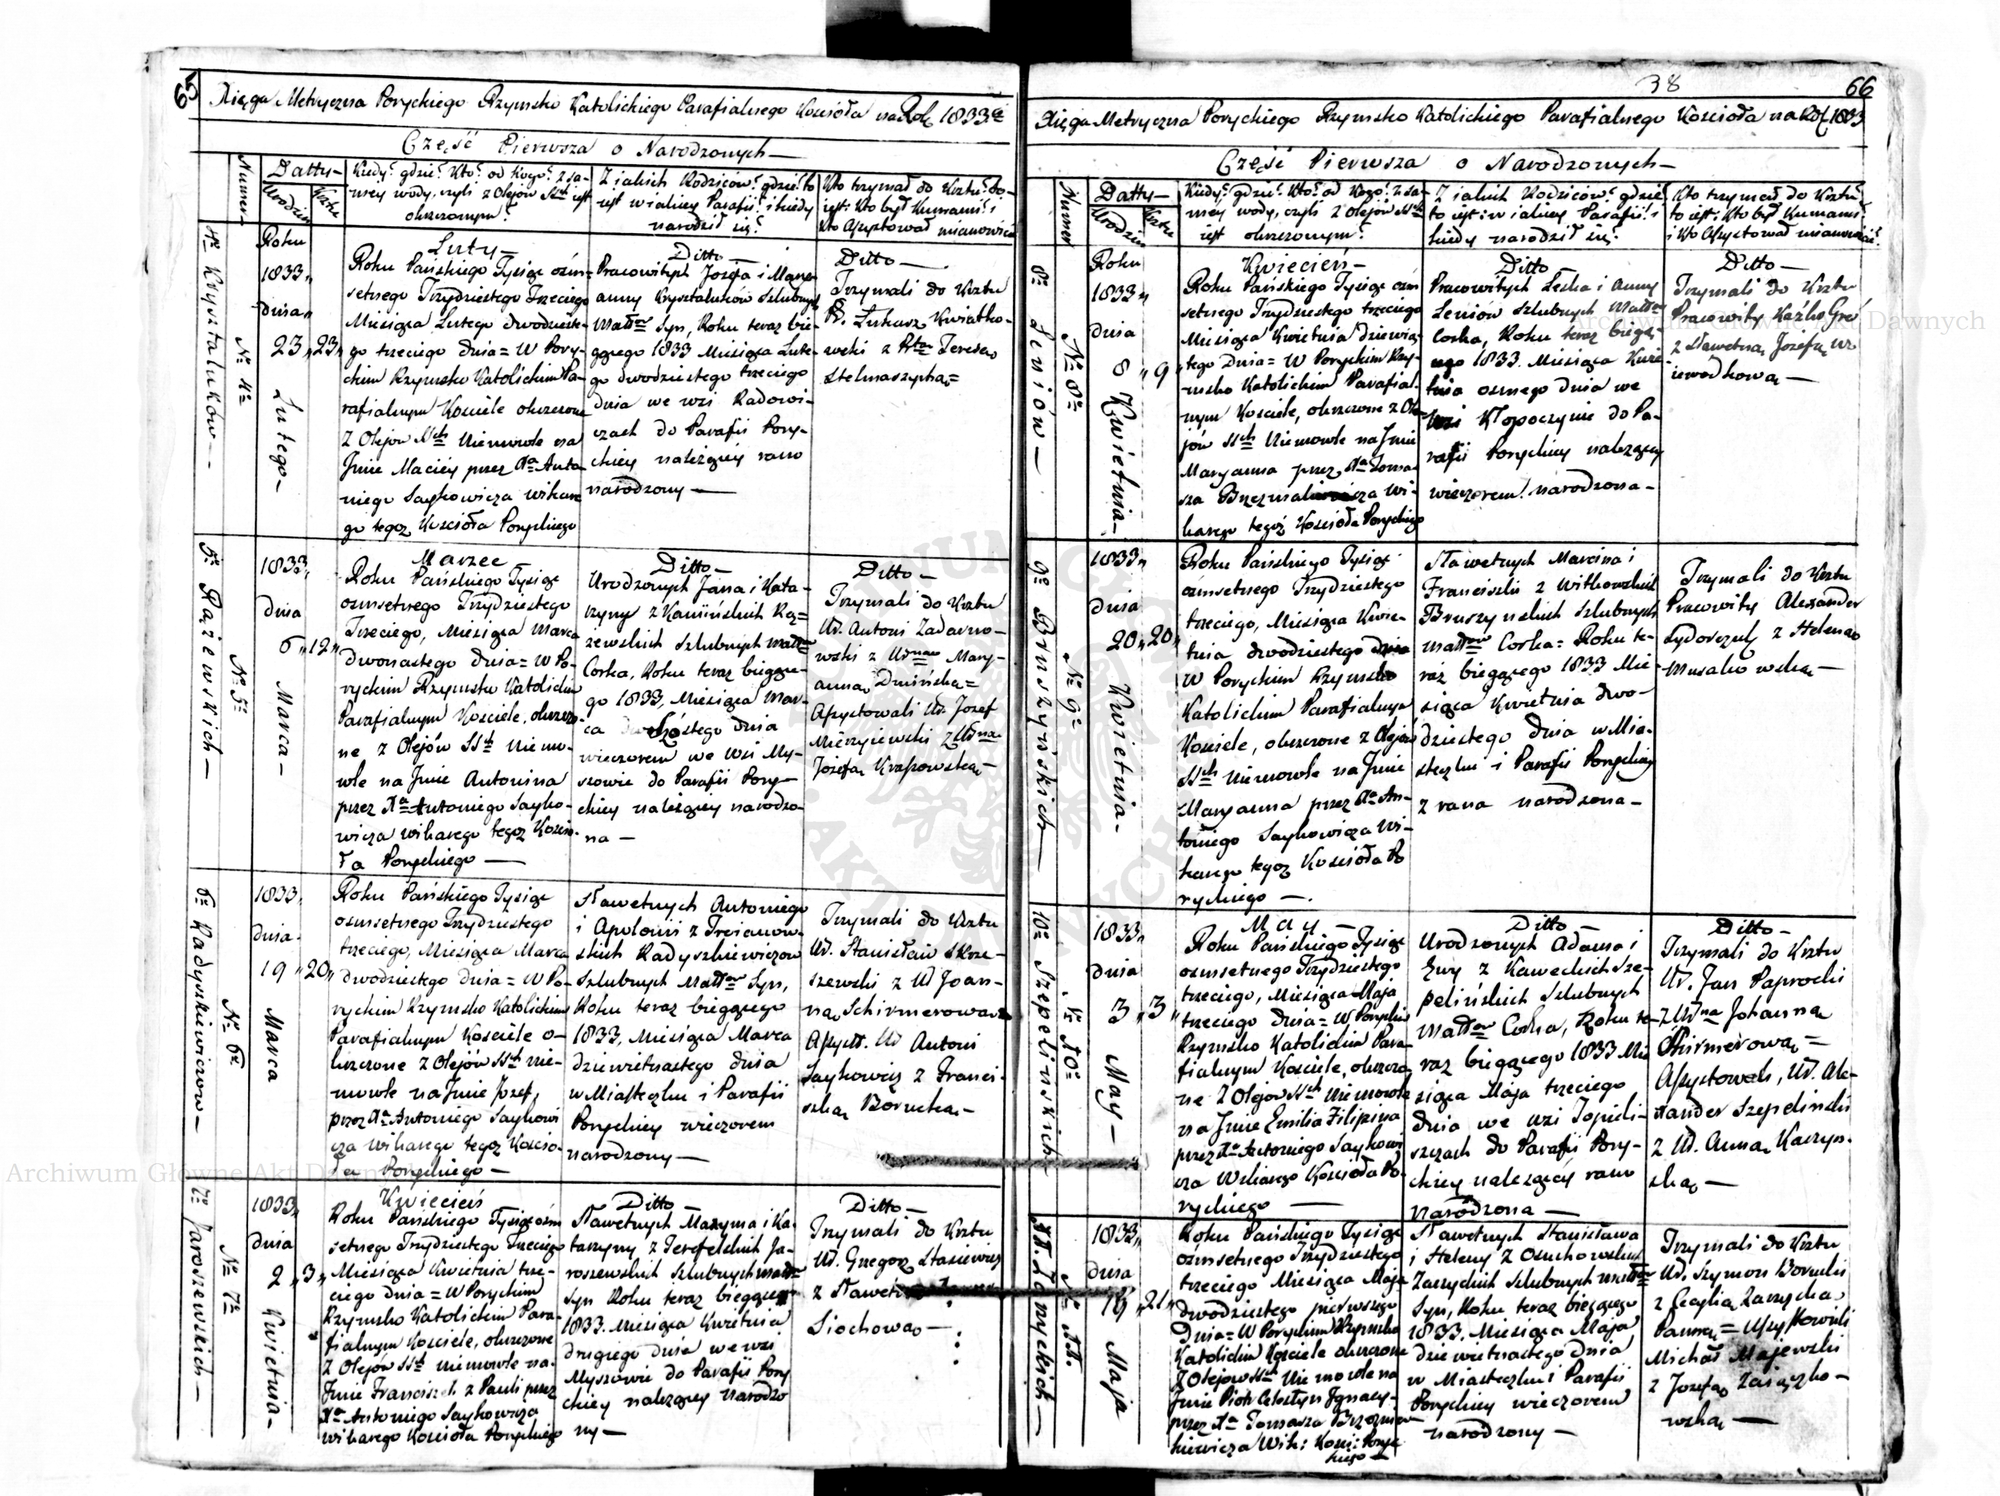 65
Xięga Metryczna Poryckiego Rzymsko Katolickiego Parafialnego Kościoła na Rok 1833
Część Pierwsza o Narodzonych
Numer
Datty
Urodzin
Kiedy? gdzie? Kto? od kogo? z sa-
mey wody, czyli z Olejów SSch jest
okrzczonym?
Z jakich Rodziców? gdzie? to
jest w jakiey Parafii? i kiedy
narodził się?
Kto trzymał do Krztu? to
jest: Kto był Kumami? i
kto Assystował mianowicie
4
Krysztaluków
N 4
Roku
1833
dnia
23 23
Lutego
Luty
Roku Pańskiego Tysiąc ośm-
setnego Trzydziestego Trzeciego
Miesiąca Lutego dwodzieste-
go trzeciego dnia = W Pory-
ckim Rzymsko Katolickim Pa-
rafialnym Kościele okrzczone
Z Olejów SSch Niemowle na
Jmie Maciéy przez Xa Anto-
niego Saykowicza wikare-
go tegoż Kościoła Poryckiego
Ditto
Pracowitych Jozefa i Mary-
anny Krysztaluków Szlubnych
Małż Syn, Roku teraz bie-
żącego 1833 Miesiąca Lute-
go dwodziestego trzeciego
Dnia we wsi Radowi-
czach do Parafii Pory-
ckiey należącey rano
narodzony
Ditto
Trzymali do Krztu
P. Łukasz Kwiatko-
wski z Teresą
Stelmaszyhą
5
Rążewskich
N 5
1833
dnia
6 12
Marca
Marzec
Roku Pańskiego Tysiąc
osmsetnego Trzydziestego
Trzeciego, Miesiąca Marca
dwonastego dnia = W Po-
ryckim Rzymsko Katolickim
Parafialnym Kościele, okrzczo-
ne z Olejów SSch Niemo-
wle na Jmie Antonina
przez Xa Antoniego Sayko-
wicza wikarego tegoż Kościo-
ła Poryckiego
Ditto
Urodzonych Jana i Kata-
rzyny z Kamińskich Rą-
żewskich Szlubnych Małż
Corka, Roku teraz bieżące-
go 1833, Miesiąca Mar-
ca szóstego dnia
wieczorem we Wsi My-
szowie do Parafii Pory-
ckiey należącey narodzo-
na
Ditto
Trzymali do Krztu
Ur. Antoni Zadarno-
wski z Mary-
anną Dmińską
Assystowali Ur. Jozef
z
Jozefą Krassowską
6
Radyszkiewiczow
N 6
1833
dnia
19 20
Marca
Roku Pańskiego Tysiąc
osmsetnego Trzydziestego
trzeciego, Miesiąca Marca
dwodziestego dnia = W Po-
ryckim Rzymsko Katolickim
Parafialnym Kościele o-
krzczone z Olejów SSch nie-
mowle na Jmie Jozef,
przez Xa Antoniego Saykowi-
cza wikarego tegoż Kościo-
ła Poryckiego
Sławetnych Antoniego
i Apolonii z Trojanow-
skich Radyszkiewiczow
Szlubnych Małż Syn,
Roku teraz bieżącego
1833, Miesiąca Marca
dziewietnastego dnia
w Miasteczku i Parafii
Poryckiey wieczorem
narodzony
Trzymali do Krztu
Ur. Stanisław Skrze-
szewski z Ur Joan-
ną Schirmerową
Assyst. Ur Antoni
Saykowicz z Franci-
szką Borucką
7
Jaroszewskich
N 7
1833
dnia
2 3
Kwietnia
Kwiecień
Roku Pańskiego Tysiąc osm-
setnego Trzydziestego Trzeciego
Miesiąca Kwietnia trze-
ciego dnia = W Poryckim
Rzymsko Katolickim Para-
fialnym Kościele, okrzczone
z Olejów SSch niemowle na
Jmie Franciszek z Pauli przez
Xa Antoniego Saykowicza
wikarego Kościoła Poryckiego
Ditto
Sławetnych Maxyma i Ka-
tarzyny z Ja-
roszewskich Szlubnych Małż
Syn Roku teraz bieżącego
1833. Miesiąca Kwietnia
drugiego dnia we wsi
Myszowie do Parafii Pory-
ckiey należącey Narodzo-
ny
Ditto
Trzymali do Krztu
Ur. Grzegorz Stasiewicz
z
Siochową
38
66
Xięga Metryczna Poryckiego Rzymsko Katolickiego Parafialnego Kościoła na Rok 1833
Część Pierwsza o Narodzonych
Numer
Datty
Urodzin
Kiedy? gdzie? Kto? od kogo? z sa-
mey wody, czyli z Olejów SSch
jest okrzczonym?
Z jakich Rodziców? gdzie
to jest: w jakiey Parafii? i
kiedy narodził się?
Kto trzymał do Krztu?
to jest: Kto był Kumami?
i kto Assystował mianowicie?
8
Leniów
N 8
Roku
1833
dnia
8 9
Kwietnia
Kwiecień
Roku Pańskiego Tysiąc osm-
setnego Trzydziestego trzeciego
Miesiąca Kwietnia dziewią-
tego Dnia = W Poryckim Rzy-
msko Katolickim Parafial-
nym Kościele, okrzczone z Ole-
jów SSch Niemowle na Jmie
Maryanna przez Xa Toma-
sza Wi-
karego tegoż Kościoła Poryckiego
Ditto
Pracowitych Leska i Anny
Leniów Szlubnych Małż
Corka, Roku teraz bieżą-
cego 1833. Miesiąca Kwie-
tnia osmego Dnia we
Wsi Kłopoczynie do Pa-
rafii Poryckiey należącey
wieczorem narodzona
Ditto
Trzymali do Krztu
Pracowity
z Sławetną Jozefą
9
Bruszyńskich
N 9
1833
dnia
20 20
Kwietnia
Roku Pańskiego Tysiąc
osmsetnego Trzydziestego
trzeciego, Miesiąca Kwie-
tnia dwodziestego dnia
W Poryckim Rzymsko
Katolickim Parafialnym
Kościele, okrzczone z Olejów
SSch Niemowle na Jmie
Maryanna przez Xa An-
toniego Saykowicza Wi-
karego tegoż Kościoła Po-
ryckiego
Sławetnych Marcina i
Franciszki z Witkowskich
Bruszyńskich Szlubnych
Małż Corka = Roku te-
raz bieżącego 1833 Mie-
siąca Kwietnia dwo-
dziestego dnia w Mia-
steczku i Parafii Poryckiey
z rana narodzona
Trzymali do Krztu
Pracowity Alexander
z Heleną
10
Szepelińskich
N 10
1833
dnia
3 3
May
May
Roku Pańskiego Tysiąc
osmsetnego Trzydziestego
trzeciego, Miesiąca Maja
trzeciego dnia = W Poryckim
Rzymsko Katolickim Para-
fialnym Kościele, okrzczo-
ne Z Olejów SSch Niemowle
na Jmie Emilia Filipina
przez Xa Antoniego Saykowi-
cza Wikarego Kościoła Po-
ryckiego
Ditto
Urodzonych Adama i
Ewy z Kaweckich Sze-
pelińskich Szlubnych
Małż Corka, Roku te-
raz bieżącego 1833 Mie-
siąca Maja trzeciego
dnia we wsi Topieli-
szczach do Parafii Pory-
ckiey należącey rano
narodzona
Ditto
Trzymali do Krztu
Ur. Jan Paprocki
z Urna Johanną
Szirmerową
Assystowali, Ur. Ale-
xander Szepeliński
z Ur. Anną Kaczyn-
ską
11.
Zarzyckich
N 11.
1833
dnia
19 21
Maja
Roku Pańskiego Tysiąc
osmsetnego Trzydziestego
trzeciego Miesiąca Maja
dwodziestego pierwszego
Dnia = W Poryckim Rzymsko
Katolickim Kościele okrzczone
z Olejow SSch Niemowle na
Jmie Piotr Celestyn Ignacy
przez Xa Tomasza Brzozmie-
kiewicza Wik: Kość: Poryc-
kiego
Sławetnych Stanisława
i Heleny z Osuchowskich
Zarzyckich Szlubnych Małż
Syn, Roku teraz bieżącego
1833. Miesiąca Maja
dziewietnastego Dnia
w Miasteczku i Parafii
Poryckiey wieczorem
narodzony
Trzymali do Krztu
Ur. Szymon Borucki
z Cecylią Zarzycką
Panną = Assystowali
Michał Majewski
z Jozefą Zajączko-
wską
Archiwum Główne Akt Dawnych
Archiwum Główne Akt Dawnych